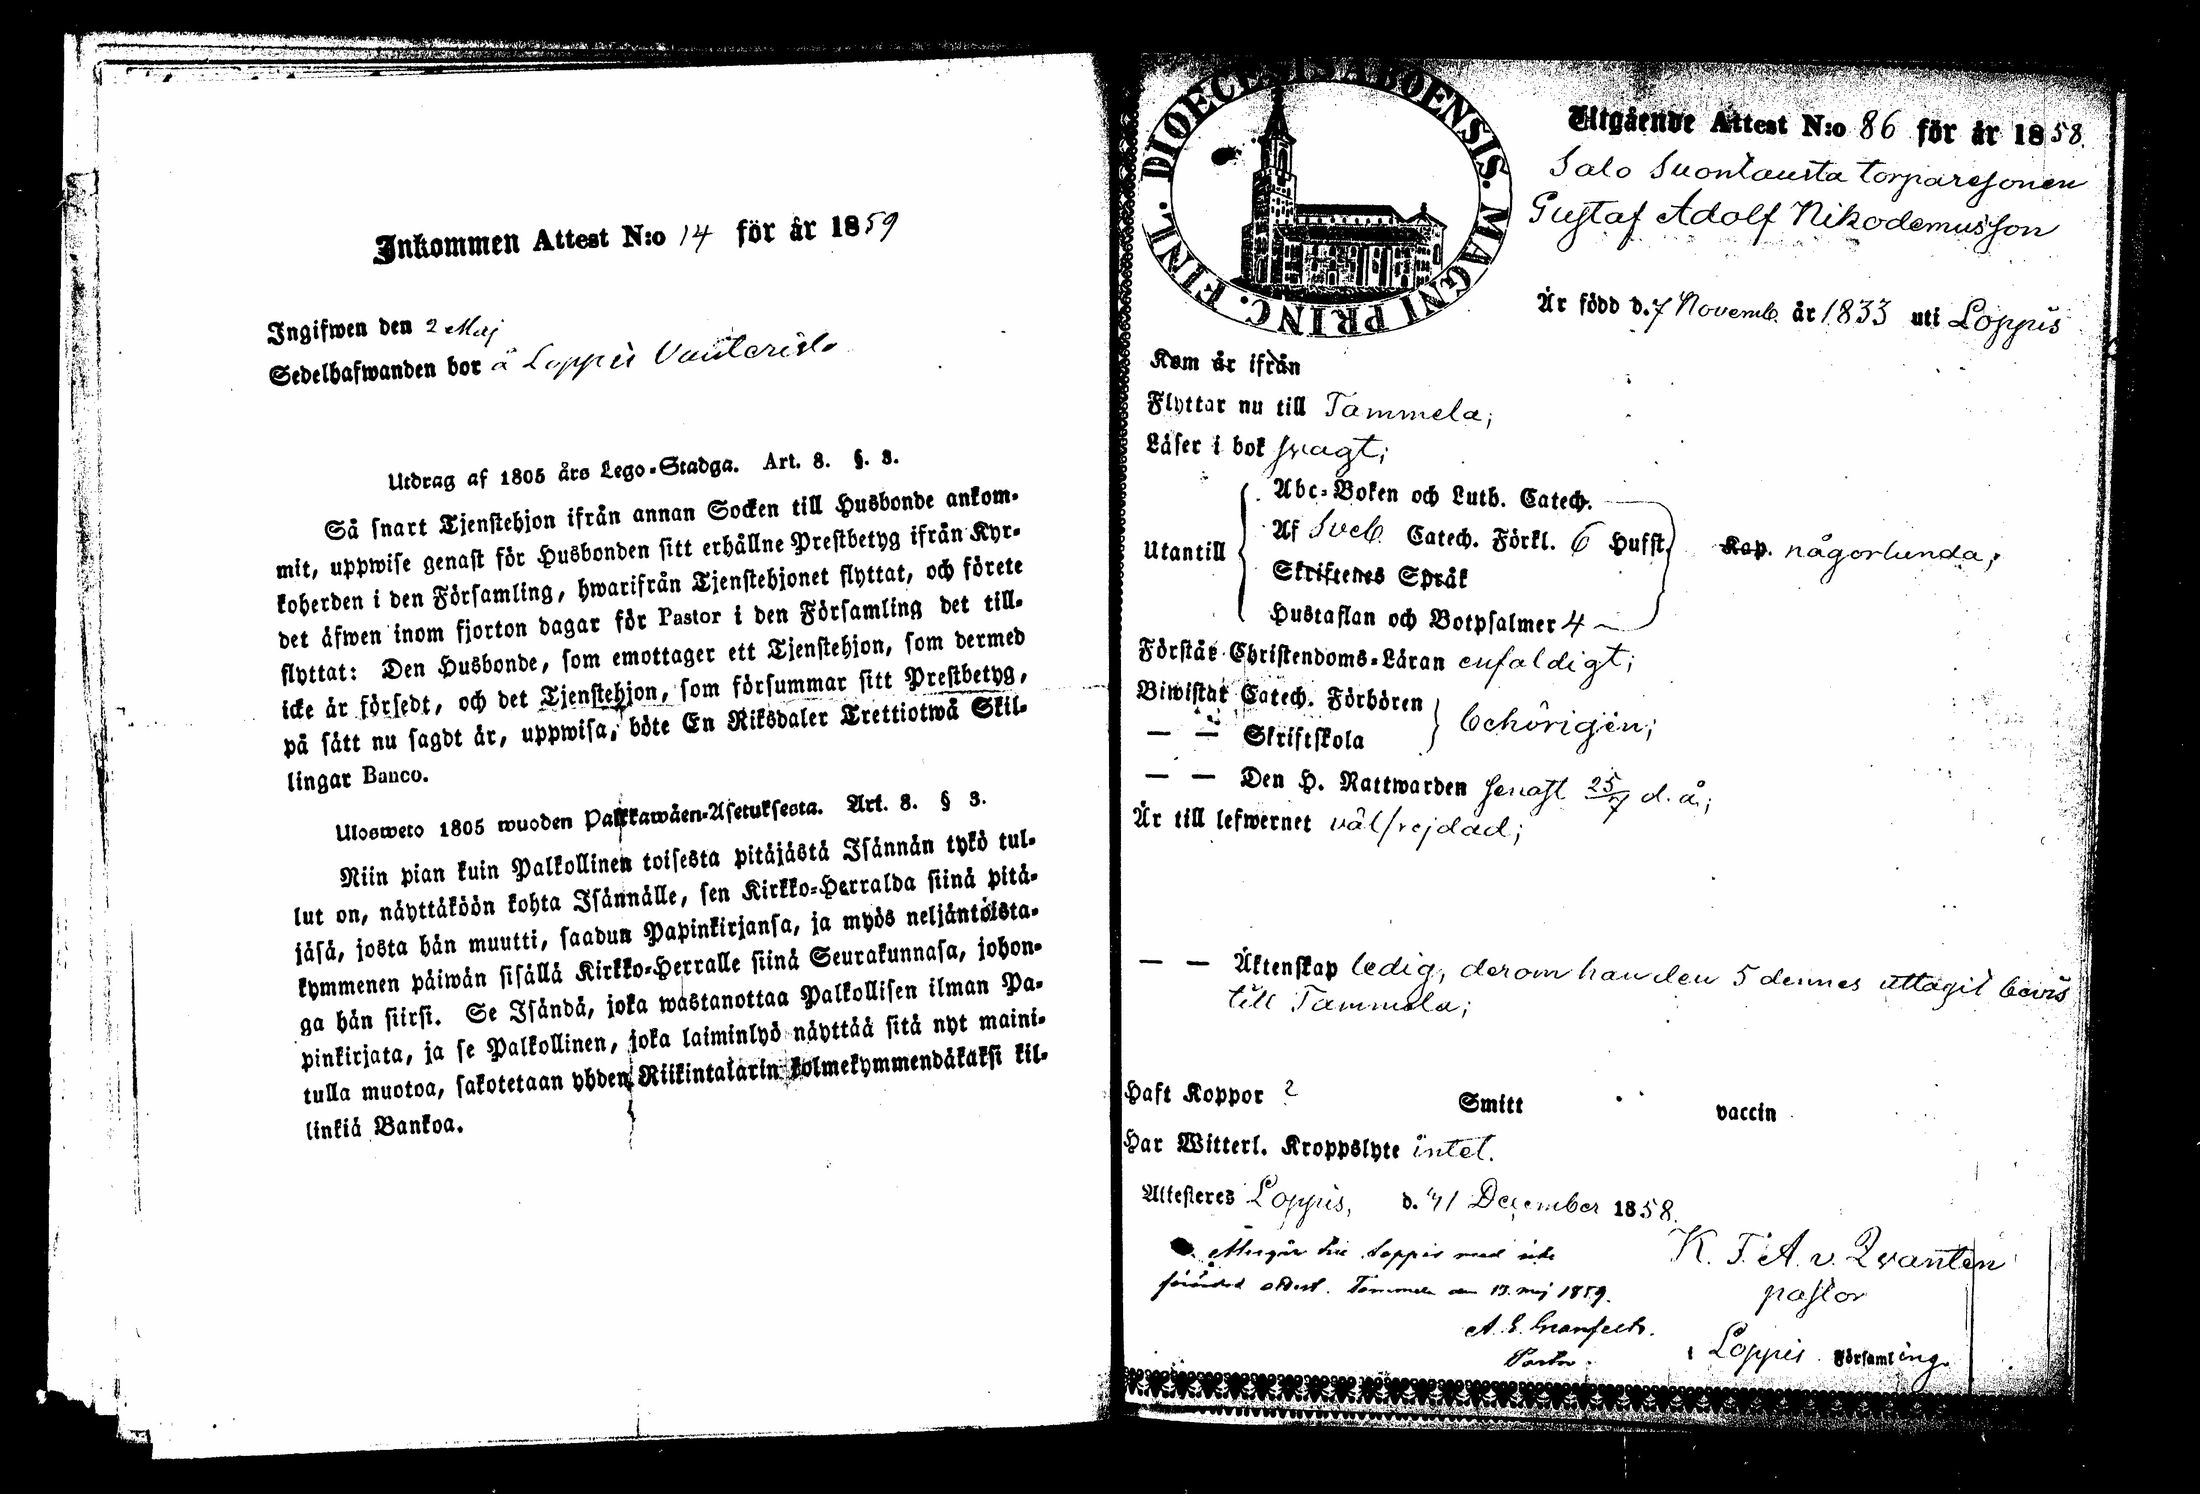 Inkommen Attest N:o 14 för år 1859
Ingifwen den 2 Maj
Sedelhafwanden bor å Loppis
Utdrag af 1805 års Lego-Stadga. Art. 8. §. 3.
Så snart Tjenstehjon ifrån annan Socken till Husbonde ankom-
mit, uppwise genast för Husbonden sitt erhållne Prestbetyg ifrån Kyr-
koherden i den Församling, hwarifrån Tjenstehjonet flyttat, och förete
det äfwen inom fjorton dagar för Pastor i den Församling det till-
flyttat: Den Husbonde, som emottager ett Tjenstehjon, som dermed
icke är försedt, och det Tjenstehjon, som försummar sitt Prestbetyg,
på sätt nu sagdt är, uppwisa, böte En Riksdaler Trettiotwå Skil-
lingar Banco.
Ulosweto 1805 wuoden Palkkawäen-Asetuksesta. Art. 8. § 3.
Niin pian kuin Palkollinen toisesta pitäjästä Isännän tykö tul-
lut on, näyttäköön kohta Isännälle, sen Kirkko-Herralda siinä pitä-
jäsä, josta hän muutti, saadun Papinkirjansa, ja myös neljäntöista-
kymmenen päiwän sisällä Kirkko-Herralle siinä Seurakunnasa, johon-
ga hän siirsi. Se Isändä, joka wastanottaa Palkollisen ilman Pa-
pinkirjata, ja se Palkollinen, joka laiminlyö näyttää sitä nyt maini-
tulla muotoa, sakotetaan yhden Riikintalarin kolmekymmendäkaksi kil-
linkiä Bankoa.
DIOECESIS ABOENSIS. MAGNI PRINC. FINL.
Utgående Attest N:o 86 för år 1858.
Salo Suontausta torparesonen
Gustaf Adolf Nikodemusson
Är född d. 7 Novemb. år 1833 uti Loppis
Kom år ifrån
Flyttar nu till Tammela;
Läser i bok svagt;
Abc-Boken och Luth. Catech.
Utantill Af Sveb. Catech. Förkl. 6 Hufst. Kap. någorlunda;
Skriftenes Språk
Hustaflan och Botpsalmer 4
Förstår Christendoms-Läran enfaldigt;
Biwistat Catech. Förhören
— — Skriftskola behörigen;
— — Den H. Nattwarden senast 25/7 d. å.;
Är till lefwernet välfrejdad;
— — Äktenskap ledig, derom han den 5 dennes uttagit bevis
till Tammela;
Haft Koppor ? Smitt vaccin
Har Witterl. Kroppslyte intet.
Attesteres Loppis, d. 11 December 1858.
K. F. A. v. Qvanten
pastor
i Loppis Församling.
Återgår till Loppis med icke
förändrad attest. Tammela den 13 maj 1859.
A. E. Granfelt.
Pastor.